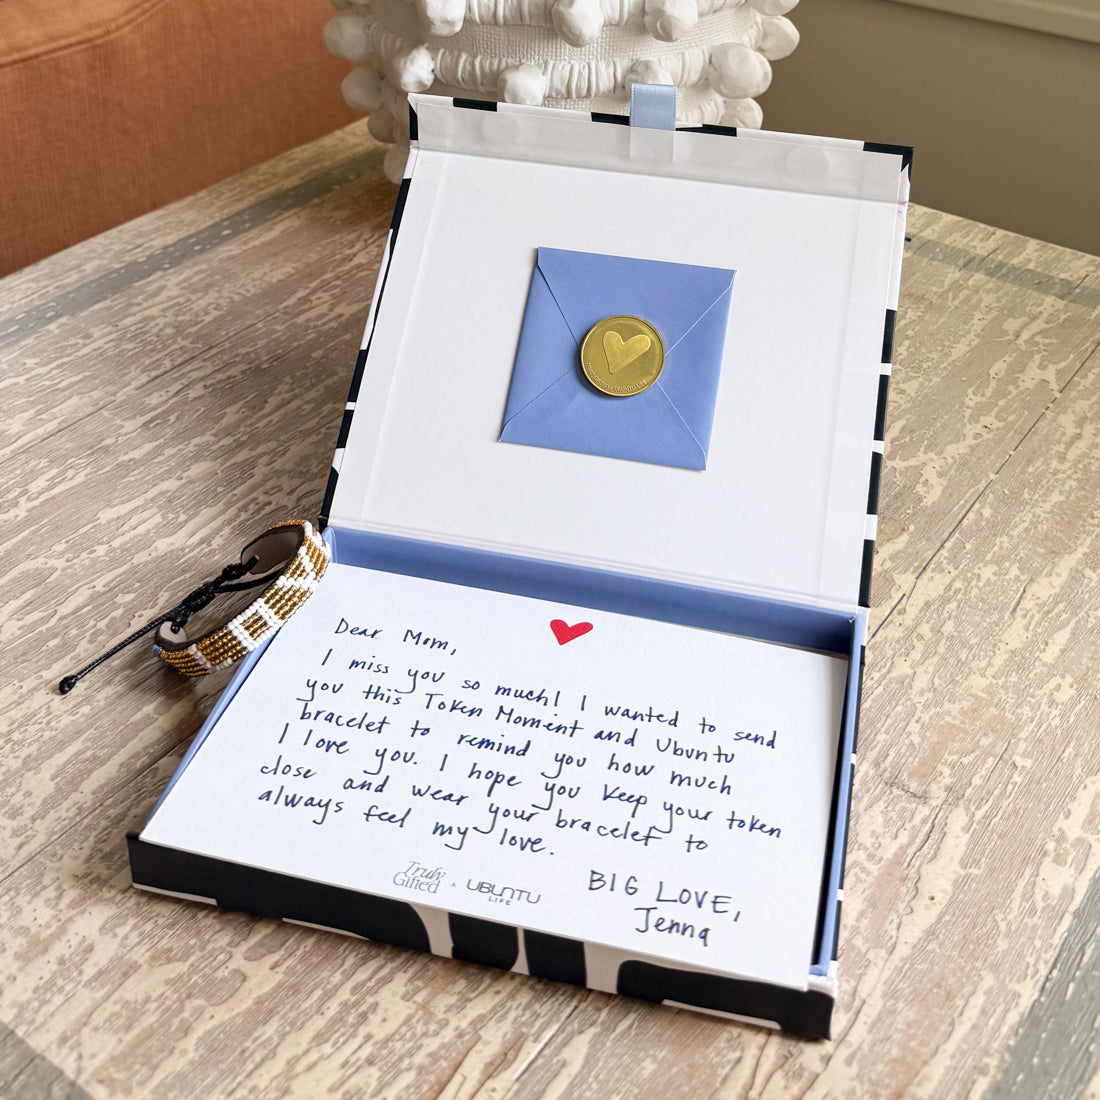 Dear Mom,
I miss you so much! I wanted to send
you this Token Moment and Ubuntu
bracelet to remind you how much
I love you. I hope you keep your token
close and wear your bracelet to
always feel my love.
BIG LOVE,
Jenna
Truly
Gifted x UBUNTU
LIFE